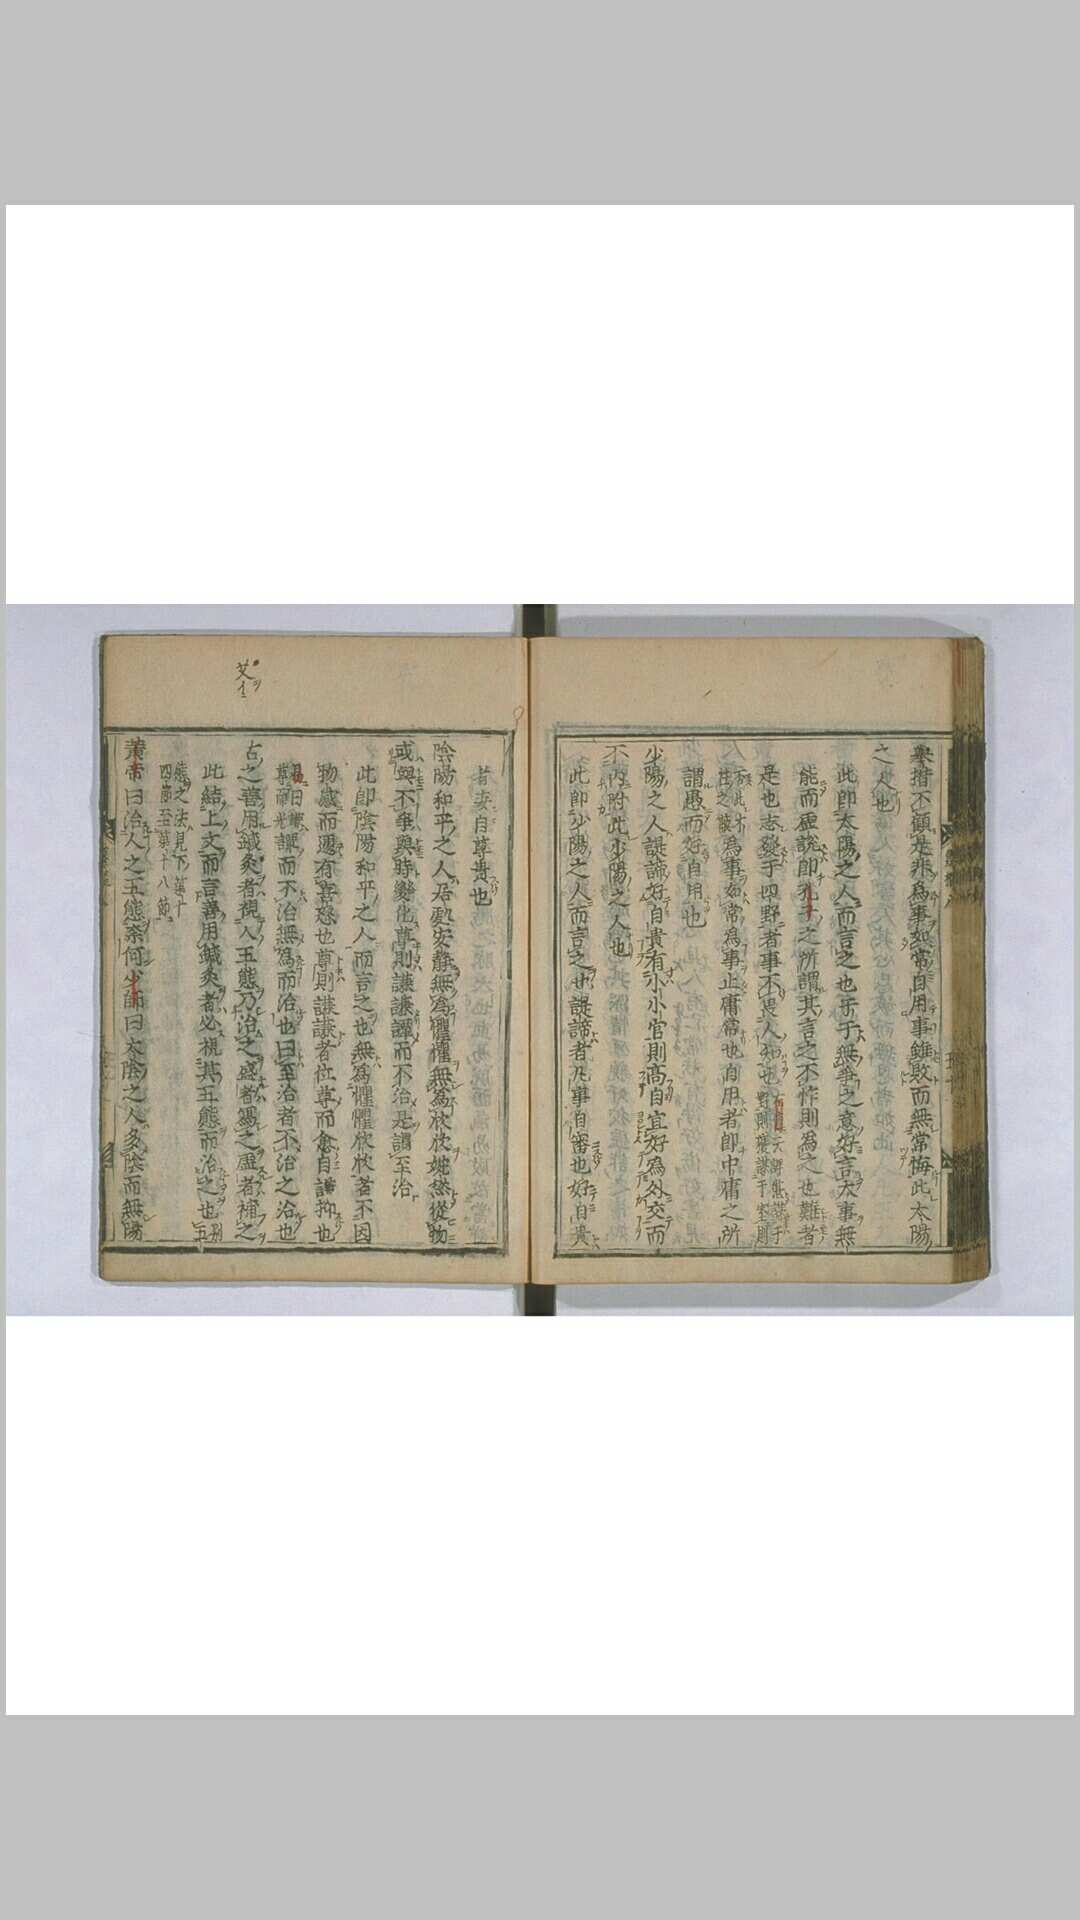 擧措不顧是非為事如常自用事雖敗而無常悔此太陽
之人也
此即太陽之人而言之也于于無爭之意好言大事無
能而虛說即孔子之所謂其言之不怍則為之也難者
是也志發于四野者事不畏人知也
為事如常為事止庸常也自用者即中庸之所
謂愚而好自用也
少陽之人諟諦好自貴有小小官則高自宜好為外交而
不內附此少陽之人也
此即少陽之人而言之也諟諦者凡事自審也好自貴
者妄自尊貴也
陰陽和平之人居處安靜無為懼懼無為欣欣婉然從物
或與不爭與時變化尊則謙謙譚而不治是謂至治
此即陰陽和平之人而言之也無為懼懼欣欣者不因
物感而遷有喜怒也尊則謙謙者位尊而愈自謙抑也
易曰謙尊而光 譚而不治無為而治也曰至治者不治之治也
古之善用鍼灸者視人五態乃治之盛者瀉之虛者補之
此結上文而言善用鍼灸者必視其五態而治之也別五
態之法見下第十
四節至第十八節
黃帝曰治人之五態柰何少師曰太陰之人多陰而無陽